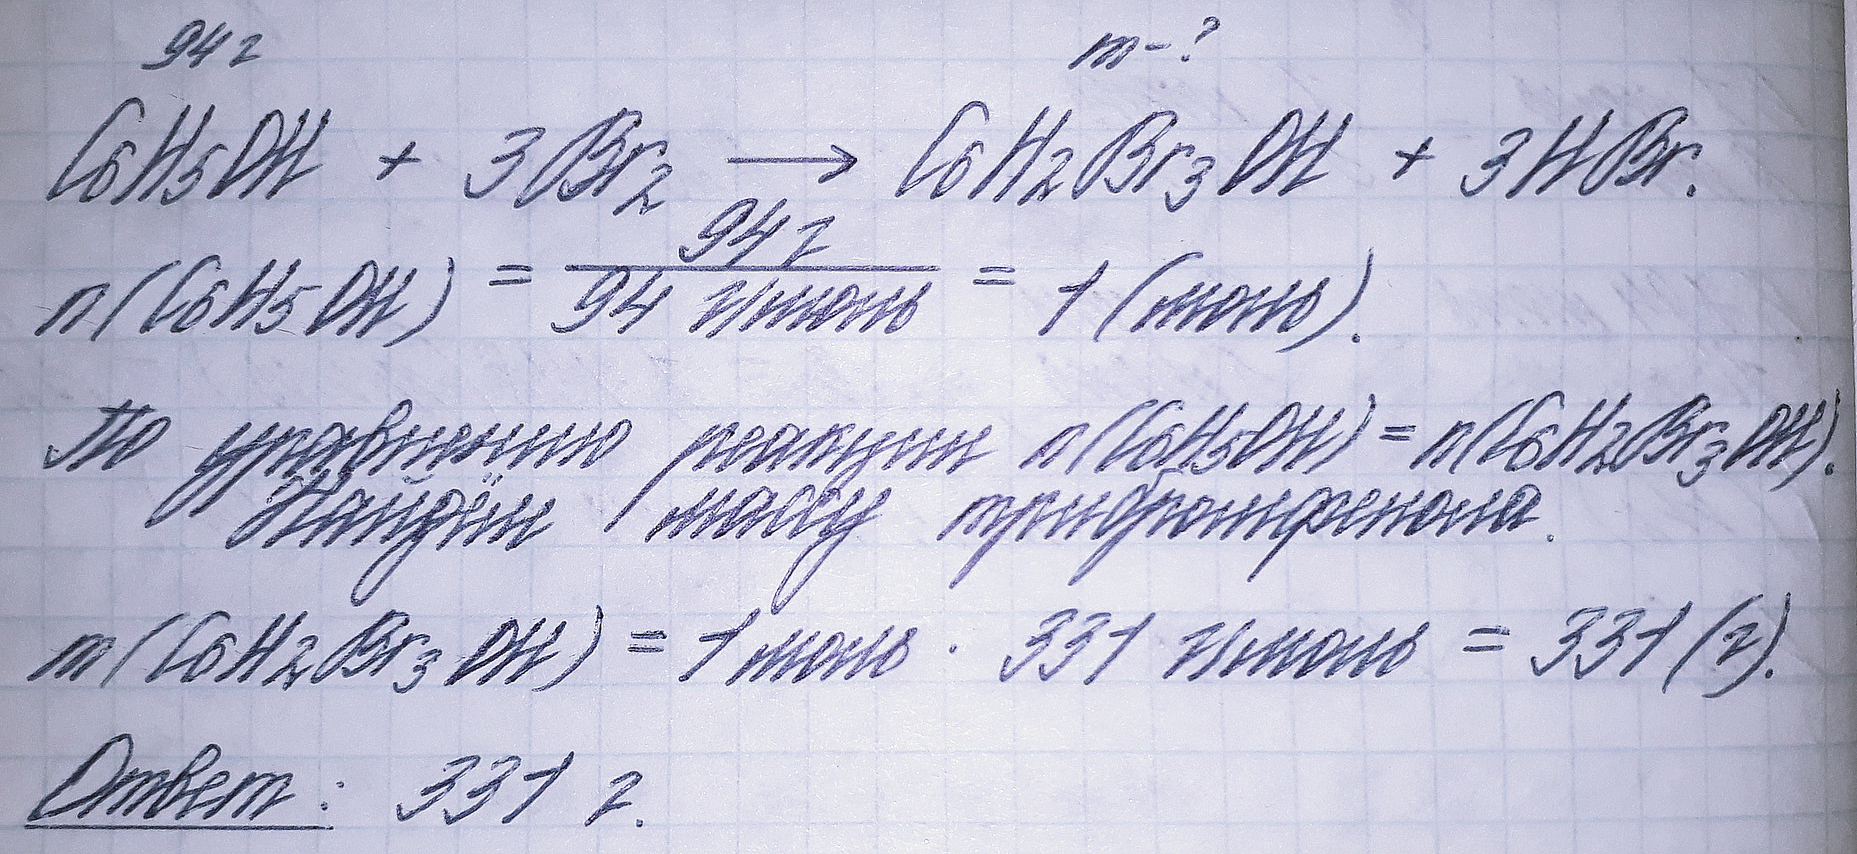 94 г m - ?
C6H5OH + 3Br2 → C6H2Br3OH + 3HBr.
n(C6H5OH) = 94 г / 94 г/моль = 1 (моль).
По уравнению реакции n(C6H5OH) = n(C6H2Br3OH).
Найдём массу трибромфенола.
m(C6H2Br3OH) = 1 моль · 331 г/моль = 331 (г).
Ответ: 331 г.